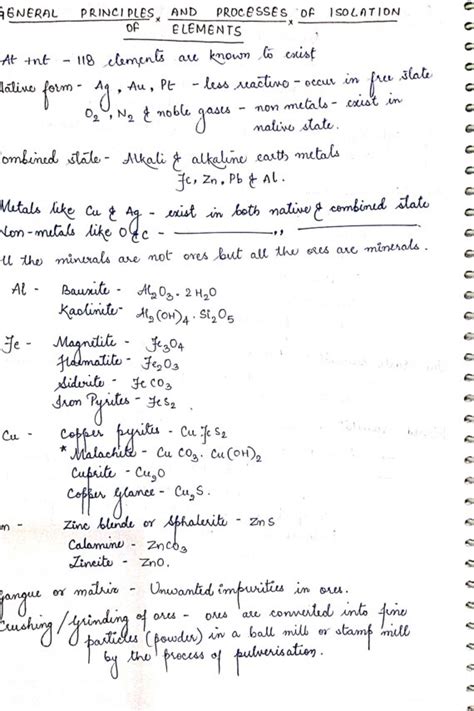 GENERAL PRINCIPLES AND PROCESSES OF ISOLATION
OF ELEMENTS
At tnt - 118 elements are known to exist
Native form - Ag, Au, Pt - less reactive - occur in free state
O2, N2 & noble gases - non metals - exist in
native state.
ombined state - Alkali & alkaline earth metals
Fe, Zn, Pb & Al.
Metals like Cu & Ag - exist in both native & combined state
Non-metals like O & C - ———— ,, ————
ll the minerals are not ores but all the ores are minerals.
Al - Bauxite - Al2O3. 2H2O
Kaolinite - Al2(OH)4. Si2O5
Fe - Magnetite - Fe3O4
Haematite - Fe2O3
Siderite - FeCO3
Iron Pyrites - FeS2
Cu - Copper pyrites - CuFeS2
* Malachite - CuCO3. Cu(OH)2
Cuprite - Cu2O
Copper glance - Cu2S.
n - Zinc blende or Sphalerite - ZnS
Calamine - ZnCO3
Zincite - ZnO.
Gangue or matrix - Unwanted impurities in ores.
Crushing/Grinding of ores - ores are converted into fine
particles (powder) in a ball mill or stamp mill
by the process of pulverisation.